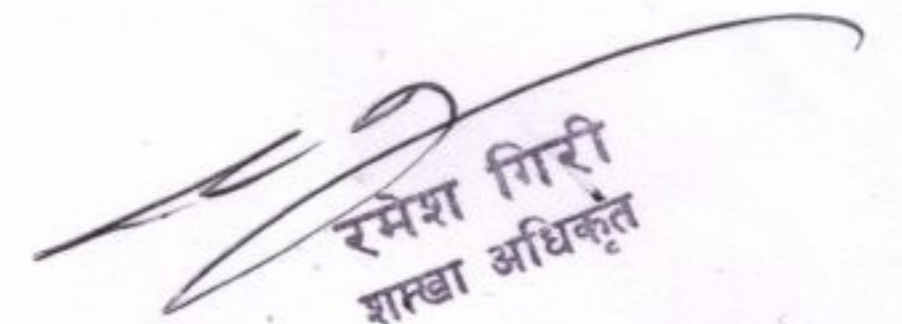 रमेश गिरी
शाखा अधिकृत